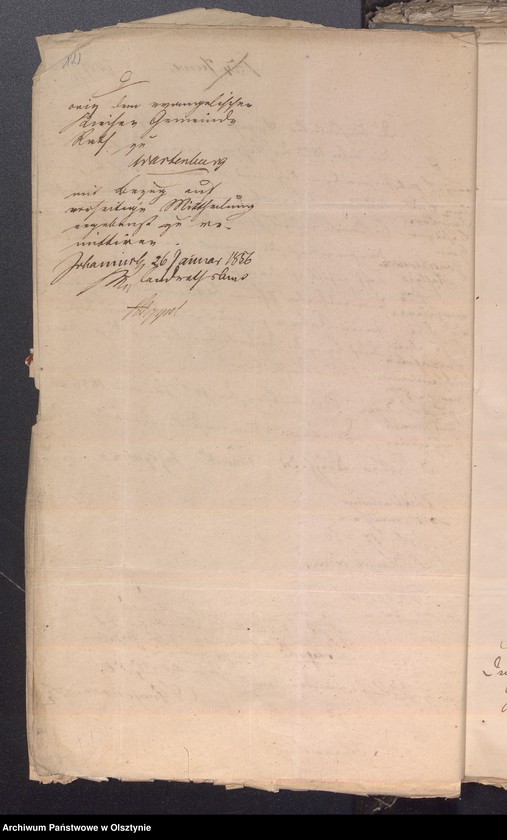 orig dem evangelischen
Kirchen Gemeinde
Rath zu
Wartenburg
mit Bezug auf
vorseitige Mittheilung
ergebenst zu re-
mittiren.
26 Januar 1856
Landraths Amt
Archiwum Państwowe w Olsztynie